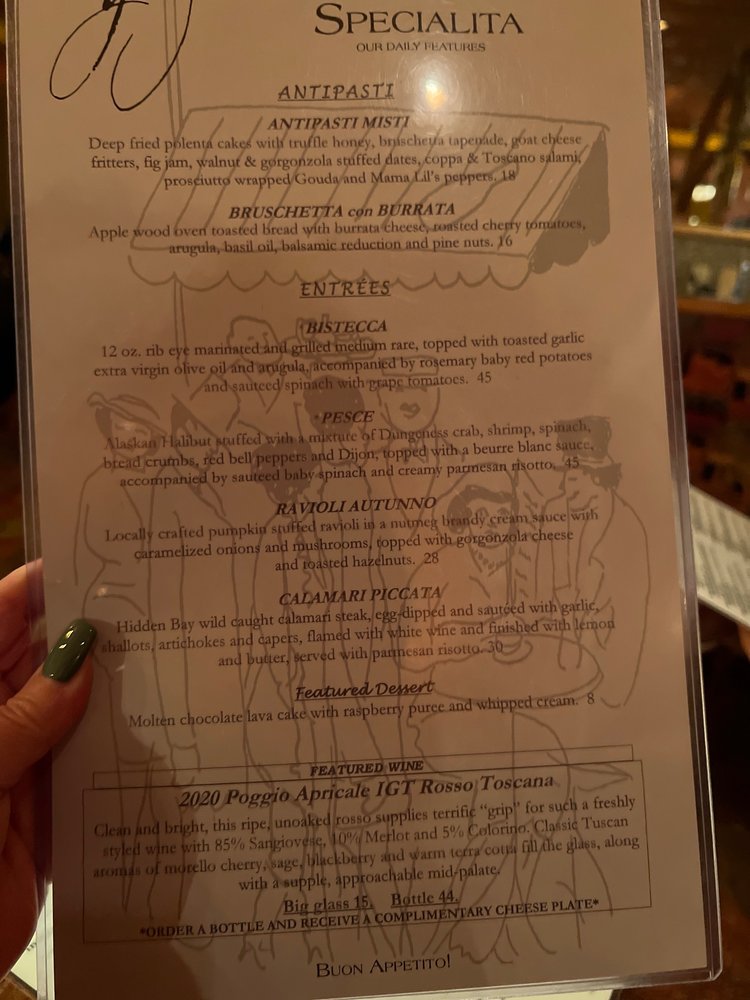 SPECIALITA
OUR DAILY FEATURES
ANTIPASTI
ANTIPASTI MISTI
Deep fried polenta cakes with truffle honey, bruschetta tapenade, goat cheese
fritters, fig jam, walnut & gorgonzola stuffed dates, coppa & Toscano salami,
prosciutto wrapped Gouda and Mama Lil's peppers. 18
BRUSCHETTA con BURRATA
Apple wood oven toasted bread with burrata cheese, roasted cherry tomatoes,
arugula, basil oil, balsamic reduction and pine nuts. 16
ENTRÉES
BISTECCA
12 oz. rib eye marinated and grilled medium rare, topped with toasted garlic
extra virgin olive oil and arugula, accompanied by rosemary baby red potatoes
and sauteed spinach with grape tomatoes. 45
PESCE
Alaskan Halibut stuffed with a mixture of Dungeness crab, shrimp, spinach,
bread crumbs, red bell peppers and Dijon, topped with a beurre blanc sauce,
accompanied by sauteed baby spinach and creamy parmesan risotto. 45
RAVIOLI AUTUNNO
Locally crafted pumpkin stuffed ravioli in a nutmeg brandy cream sauce with
caramelized onions and mushrooms, topped with gorgonzola cheese
and toasted hazelnuts. 28
CALAMARI PICCATA
Hidden Bay wild caught calamari steak, egg-dipped and sautéed with garlic,
shallots, artichokes and capers, flamed with white wine and finished with lemon
and butter, served with parmesan risotto. 30
Featured Dessert
Molten chocolate lava cake with raspberry puree and whipped cream. 8
FEATURED WINE
2020 Poggio Apricale IGT Rosso Toscana
Clean and bright, this ripe, unoaked rosso supplies terrific "grip" for such a freshly
styled wine with 85% Sangiovese, 10% Merlot and 5% Colorino. Classic Tuscan
aromas of morello cherry, sage, blackberry and warm terra cotta fill the glass, along
with a supple, approachable mid-palate.
Big glass 15. Bottle 44.
*ORDER A BOTTLE AND RECEIVE A COMPLIMENTARY CHEESE PLATE*
BUON APPETITO!